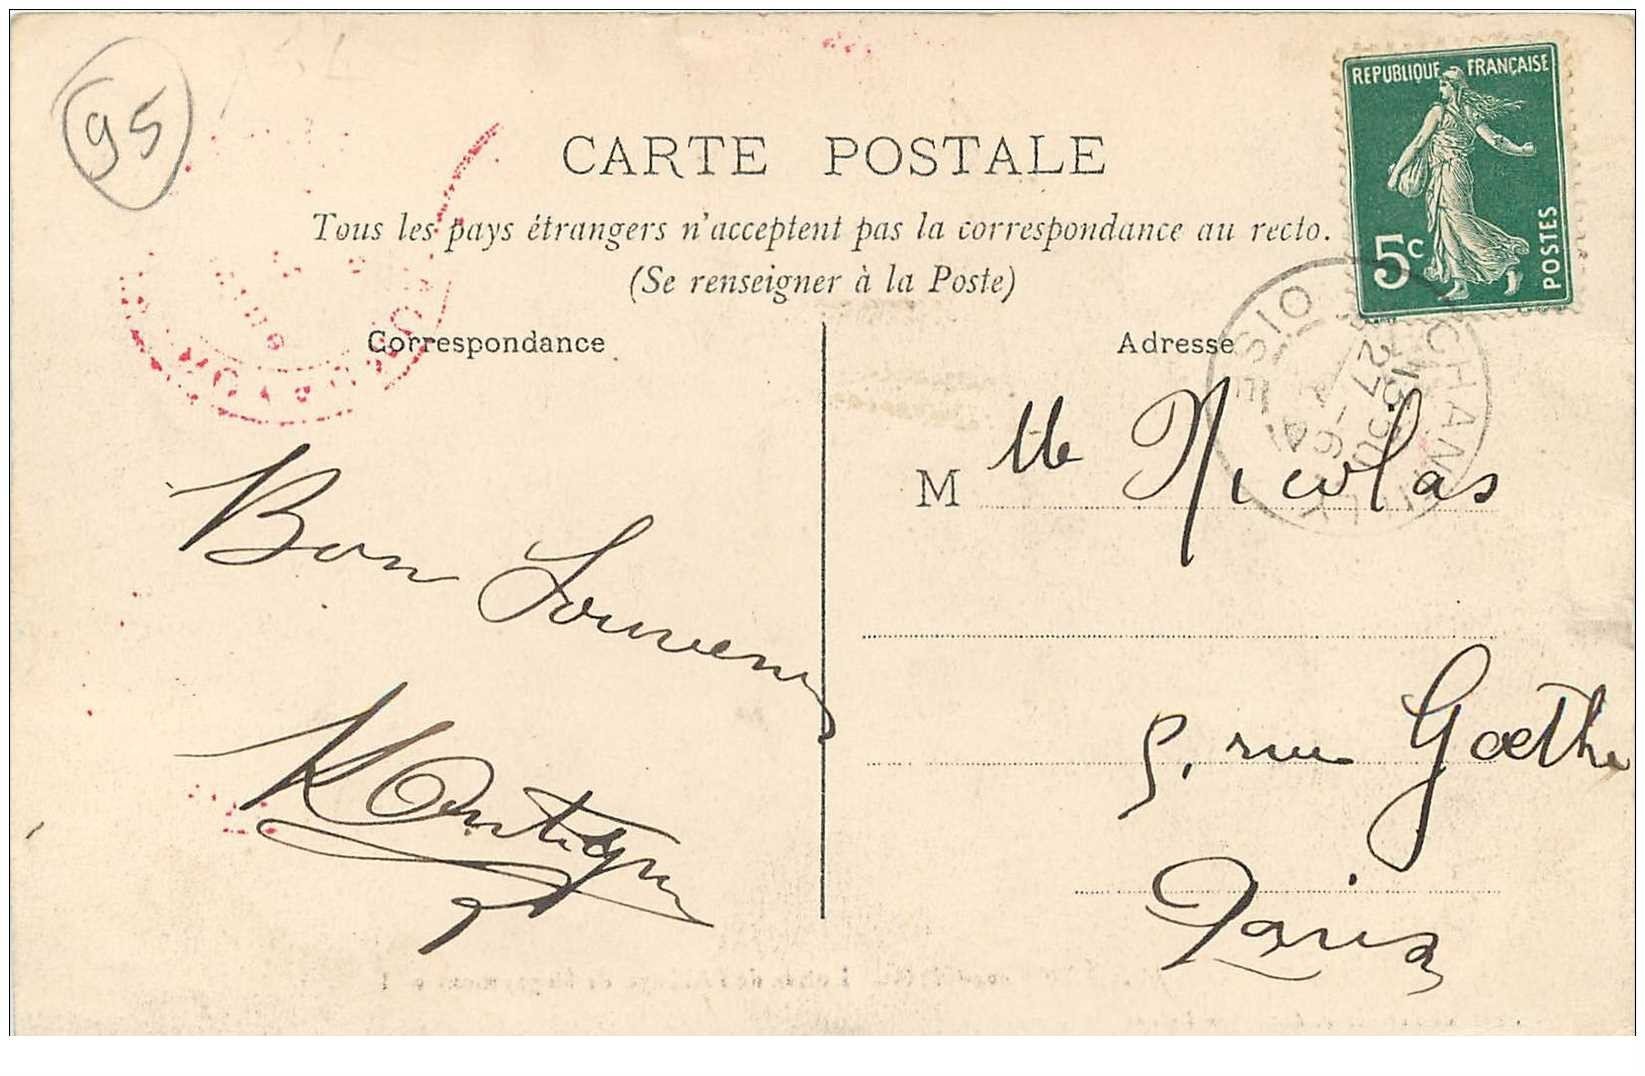 95
REPUBLIQUE FRANÇAISE
5c
POSTES
CARTE POSTALE
Tous les pays étrangers n'acceptent pas la correspondance au recto.
(Se renseigner à la Poste)
Correspondance
Adresse
OISE
CHANTILLY
13 30
27 -6
Bon Souvenir
M lle Nicolas
5, rue Goethe
Paris